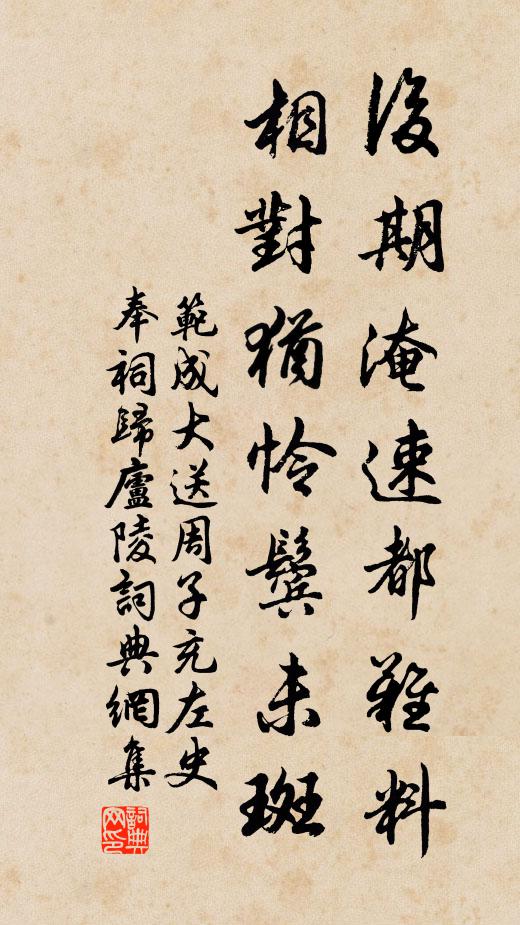 後期淹速都難料
相對猶怜鬢未斑
範成大送周子充左史
奉祠歸廬陵詞典網集
詞典网印